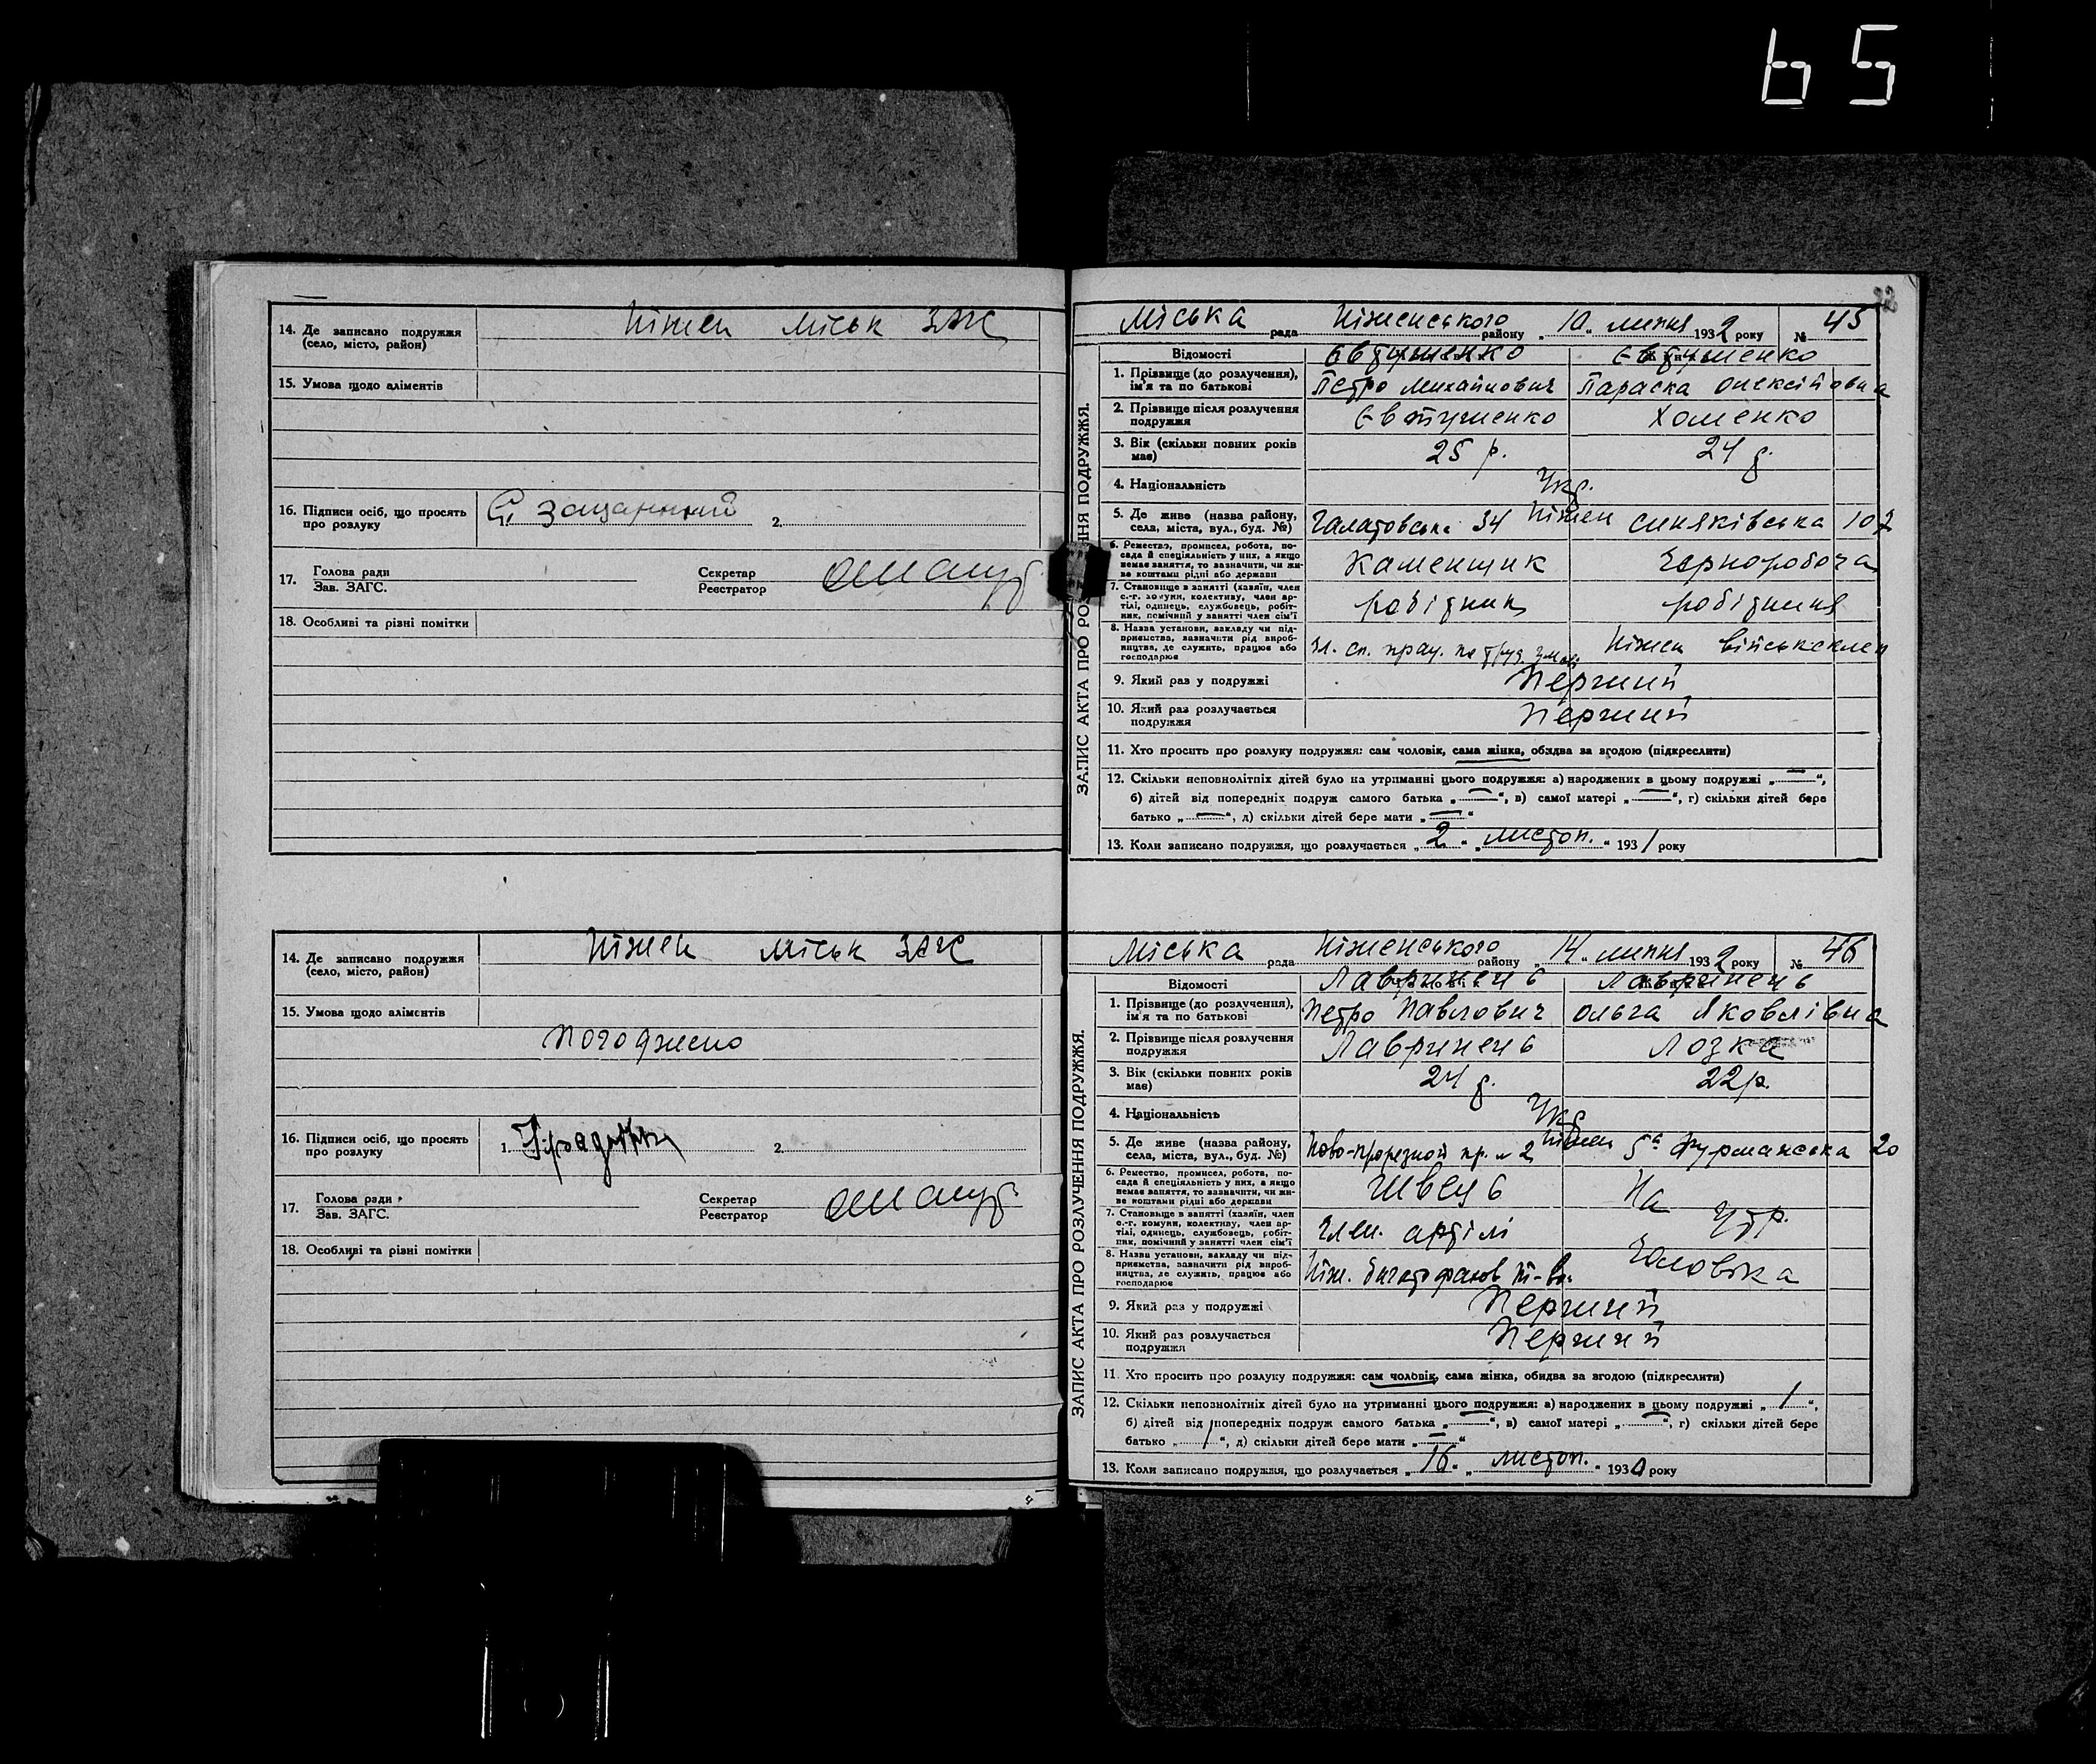 65
14. Де записано подружжя (село, місто, район) Ніжен міськ ЗАГС
15. Умова щодо аліментів
16. Підписи осіб, що просять про розлуку 2.
17. Голова ради
Зав. ЗАГС.
Секретар
Реєстратор
18. Особливі та різні помітки
14. Де записано подружжя (село, місто, район) Ніжен міськ ЗАГС
15. Умова щодо аліментів
Погоджено
16. Підписи осіб, що просять про розлуку 1. 2.
17. Голова ради
Зав. ЗАГС.
Секретар
Реєстратор
18. Особливі та різні помітки
22
ЗАПИС АКТА ПРО РОЗЛУЧЕННЯ ПОДРУЖЖЯ.
Міська рада Ніженського району „10„ липня 1932 року № 45
Відомості Євтушенко Євтушенко
1. Прізвище (до розлучення), ім'я та по батькові Петро Михайлович Параска Олексійовна
2. Прізвище після розлучення подружжя Євтушенко Хоменко
3. Вік (скільки повних років має) 25 р. 24 р.
4. Національність Укр.
5. Де живе (назва району, села, міста, вул., буд. №) 34 Ніжен Синяківська 107
6. Ремество, промисел, робота, посада й спеціяльність у них, а якщо немає заняття, то зазначити, чи живе коштами рідні або держави Каменщик Чорноробоча
7. Становище в занятті (хазяїн, член с.-г. комуни, колективу, член артілі, одинець, службовець, робітник, помічний у занятті член сім'ї робітник робітниця
8. Назва установи, закладу чи підприємства, зазначити рід виробництва, де служить, працює або господарює Ніжен
9. Який раз у подружжі Перший
10. Який раз розлучається подружжя Перший
11. Хто просить про розлуку подружжя: сам чоловік, сама жінка, обидва за згодою (підкреслити)
12. Скільки неповнолітніх дітей було на утриманні цього подружжя: а) народжених в цьому подружжі „ — “,
б) дітей від попередніх подруж самого батька „ — “, в) самої матері „ — “, г) скільки дітей бере
батько „ — “, д) скільки дітей бере мати „ — “
13. Коли записано подружжя, що розлучається „ 2 “ „ листоп. “ 1931 року
ЗАПИС АКТА ПРО РОЗЛУЧЕННЯ ПОДРУЖЖЯ.
Міська рада Ніженського району „14„ липня 1932 року № 46
Відомості Лавринець Лавринець
1. Прізвище (до розлучення), ім'я та по батькові Петро Павлович Ольга Яковлівна
2. Прізвище після розлучення подружжя Лавринець Лозка
3. Вік (скільки повних років має) 24 р. 22 р.
4. Національність Укр
5. Де живе (назва району, села, міста, вул., буд. №) Ніжен 20
6. Ремество, промисел, робота, посада й спеціяльність у них, а якщо немає заняття, то зазначити, чи живе коштами рідні або держави Швець На утр.
7. Становище в занятті (хазяїн, член с.-г. комуни, колективу, член артілі, одинець, службовець, робітник, помічний у занятті член сім'ї член. артілі
8. Назва установи, закладу чи підприємства, зазначити рід виробництва, де служить, працює або господарює Ніж. Чоловіка
9. Який раз у подружжі Перший
10. Який раз розлучається подружжя Перший
11. Хто просить про розлуку подружжя: сам чоловік, сама жінка, обидва за згодою (підкреслити)
12. Скільки неповнолітніх дітей було на утриманні цього подружжя: а) народжених в цьому подружжі „ 1 “,
б) дітей від попередніх подруж самого батька „ — “, в) самої матері „ — “, г) скільки дітей бере
батько „ 1 “, д) скільки дітей бере мати „ — “
13. Коли записано подружжя, що розлучається „ 16 “ „ листоп. “ 1930 року